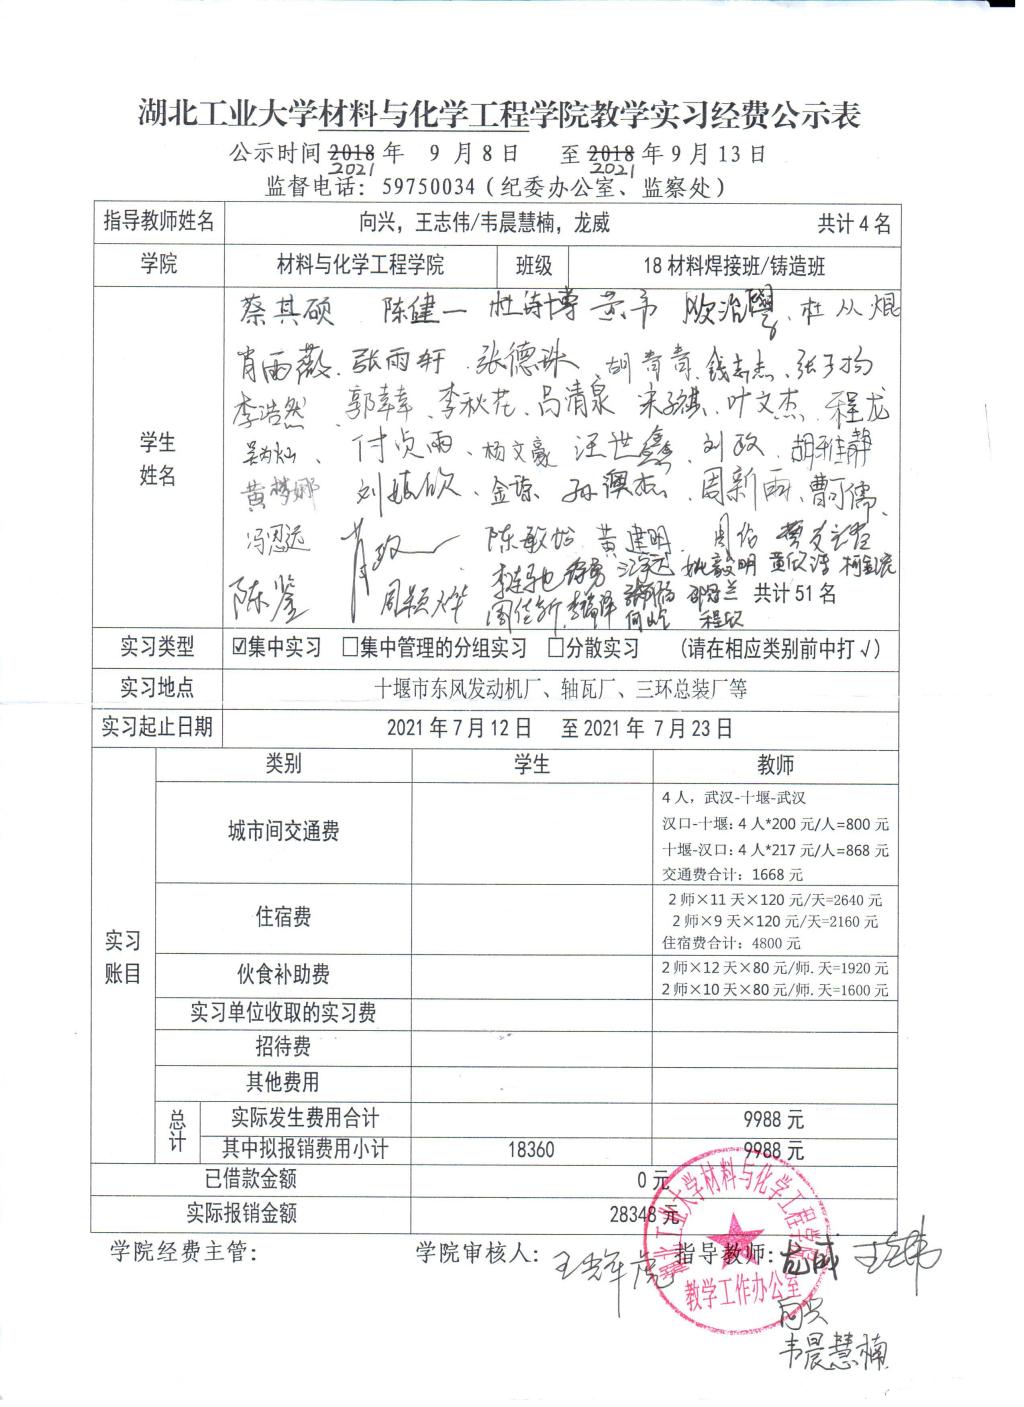 湖北工业大学材料与化学工程学院教学实习经费公示表
公示时间2018年 9月8日 至2018年9月13日
2021 2021
监督电话：59750034（纪委办公室、监察处）
指导教师姓名 向兴，王志伟/韦晨慧楠，龙威 共计4名
学院 材料与化学工程学院 班级 18材料焊接班/铸造班
学生姓名
蔡其硕 陈建一 杜诗博 黄韦 欧治 杜从焜
肖雨薇、张雨轩、张德 胡青青、钱志杰、张子扬
李浩然 郭幸幸、李秋花、吕清泉 宋 叶文杰、程龙
吴灿、付贞雨、杨文豪 汪世鑫、刘政、胡雅静
黄梦娜 刘 欣、金 孙 杰、周新雨、曹可儒、
冯恩远 肖政 陈敏怡 黄建明 周
陈鉴 周颖烨 姚毅明 黄欣 柯
周佳 何 程欣 共计51名
实习类型 ☑集中实习 □集中管理的分组实习 □分散实习 （请在相应类别前中打√）
实习地点 十堰市东风发动机厂、轴瓦厂、三环总装厂等
实习起止日期 2021年7月12日 至2021年 7月23日
实习账目
类别 学生 教师
城市间交通费
4人，武汉-十堰-武汉
汉口-十堰：4人*200元/人=800元
十堰-汉口：4人*217元/人=868元
交通费合计：1668元
住宿费
2师×11天×120元/天=2640元
2师×9天×120元/天=2160元
住宿费合计：4800元
伙食补助费
2师×12天×80元/师.天=1920元
2师×10天×80元/师.天=1600元
实习单位收取的实习费
招待费
其他费用
总计
实际发生费用合计 9988元
其中拟报销费用小计 18360 9988元
已借款金额 0元
实际报销金额 28348元
学院经费主管： 学院审核人： 指导教师：龙威 王志伟
向兴
韦晨慧楠
湖北工业大学材料与化学工程学院
教学工作办公室